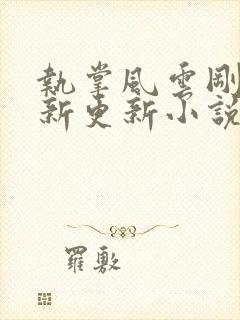 執掌風雲剛
新更新小說
羅敷